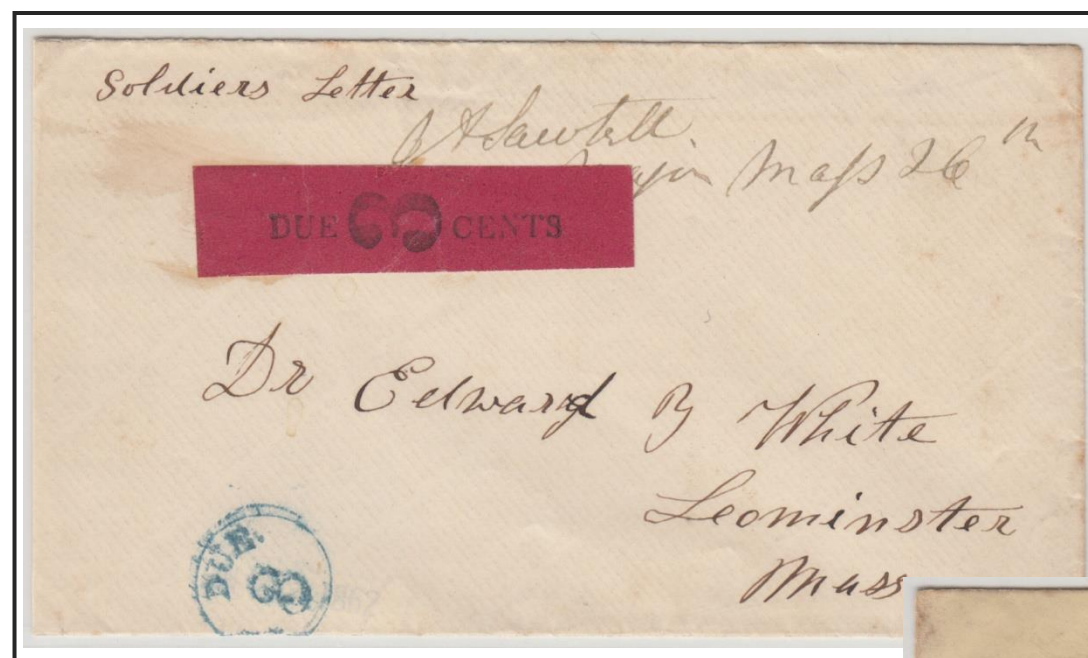 Soldiers Letter
A Sawtell
Major Mass 26th
DUE 3 CENTS
Dr Edward White
Leominster
Mass
DUE 3